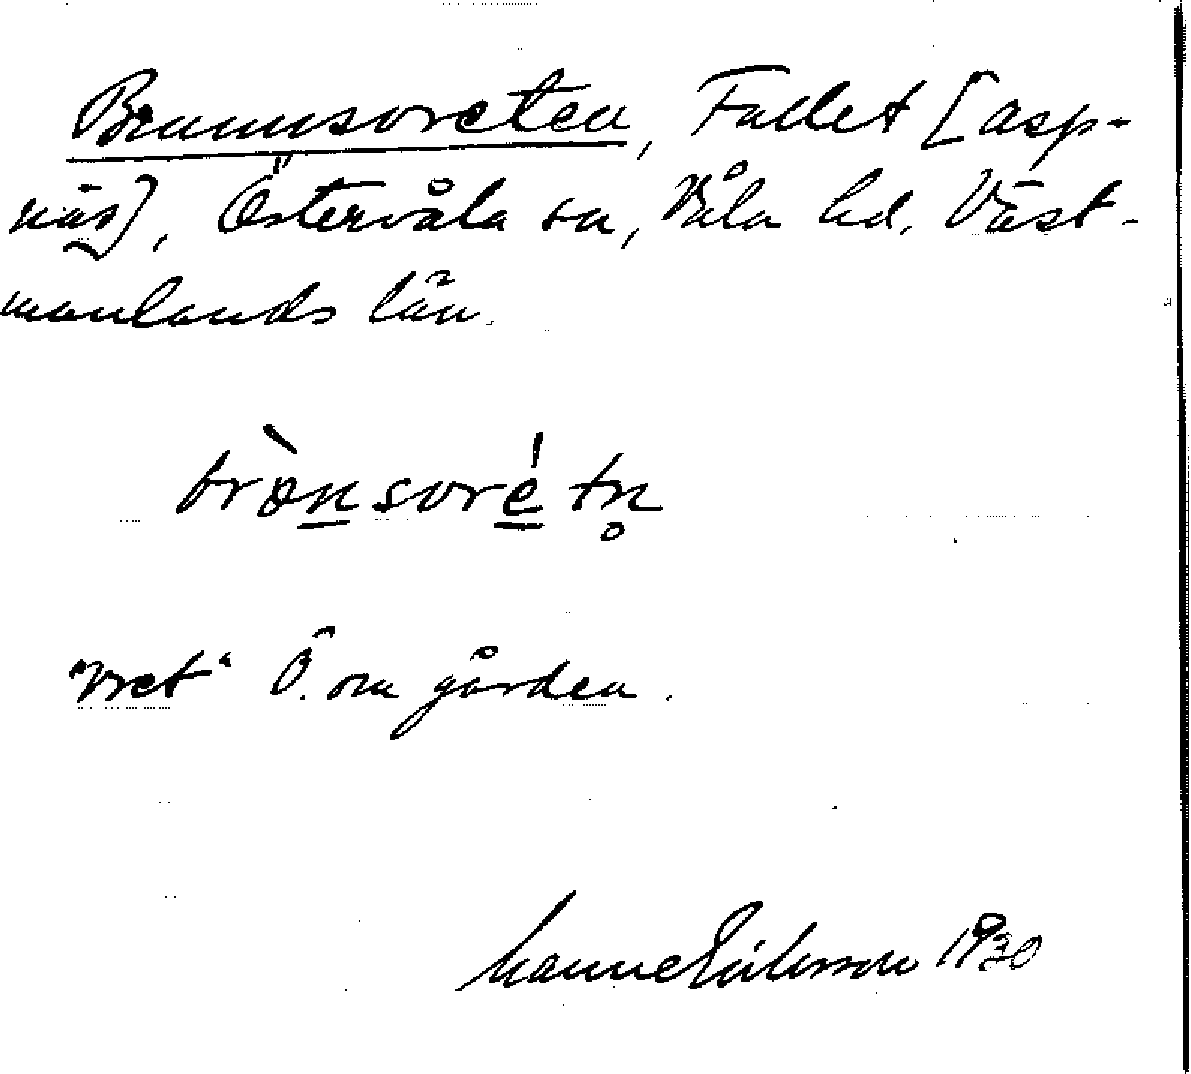 Brunnsvreten, Fallet [Asp-
näs], Östervåla sn, Våla hd. Väst-
manlands län.
brònsvrétn̥
"vret" Ö. om gården.
Manne Eriksson 1930